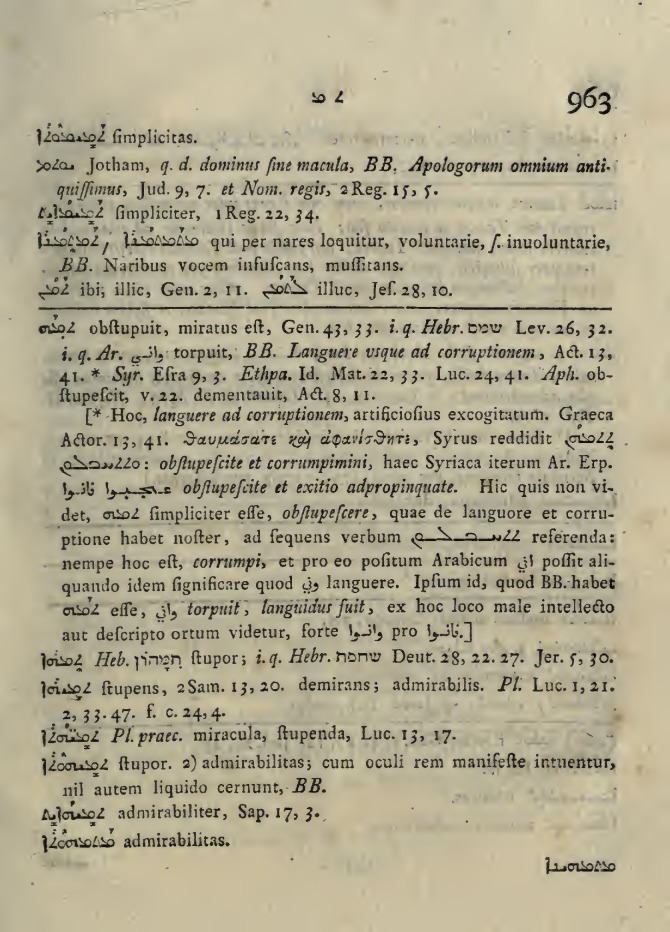 ܬ ܡ 963
ܬܡܝܡܘܬܐ ſimplicitas.
ܝܘܬܡ Jotham, q. d. dominus ſine macula, BB. Apologorum omnium anti-
quiſſimus, Jud. 9, 7. et Nom. regis, 2 Reg. 15, 5.
ܬܡܝܡܐܝܬ ſimpliciter, 1 Reg. 22, 34.
qui per nares loquitur, voluntarie, ſ. inuoluntarie,
BB. Naribus vocem infuſcans, muſſitans.
ܬܡܢ ibi, illic, Gen. 2, 11. ܠܬܡܢ illuc, Jeſ. 28, 10.
ܬܡܗ obſtupuit, miratus eſt, Gen. 43, 33. i. q. Hebr. שמם Lev. 26, 32.
i. q. Ar. torpuit, BB. Languere vsque ad corruptionem, Act. 13,
41. * Syr. Eſra 9, 3. Ethpa. Id. Mat. 22, 33. Luc. 24, 41. Aph. ob-
ſtupefcit, v. 22. dementauit, Act. 8, 11.
[* Hoc, languere ad corruptionem, artificioſius excogitatum. Graeca
Actor. 13, 41. θαυμάσατε καὶ ἀφανίσθητε, Syrus reddidit
: obſtupeſcite et corrumpimini, haec Syriaca iterum Ar. Erp.
obſtupeſcite et exitio adpropinquate. Hic quis non vi-
det, ܬܡܗ ſimpliciter eſſe, obſtupeſcere, quae de languore et corru-
ptione habet noſter, ad ſequens verbum referenda:
nempe hoc eſt, corrumpi, et pro eo poſitum Arabicum poſſit ali-
quando idem ſignificare quod languere. Ipſum id, quod BB. habet
ܬܡܗ eſſe, torpuit, languidus fuit, ex hoc loco male intellecto
aut deſcripto ortum videtur, forte pro .]
ܬܡܗܐ Heb. תמהון ſtupor; i. q. Hebr. שחפת Deut. 28, 22. 27. Jer. 5, 30.
ܬܡܝܗܐ ſtupens, 2 Sam. 13, 20. demirans; admirabilis. Pl. Luc. 1, 21.
2, 33. 47. f. c. 24, 4.
ܬܡܝܗܬܐ Pl. praec. miracula, ſtupenda, Luc. 13, 17.
ܬܡܝܗܘܬܐ ſtupor. 2) admirabilitas; cum oculi rem manifeſte intuentur,
nil autem liquido cernunt, BB.
ܬܡܝܗܐܝܬ admirabiliter, Sap. 17, 3.
ܡܬܡܗܘܬܐ admirabilitas.